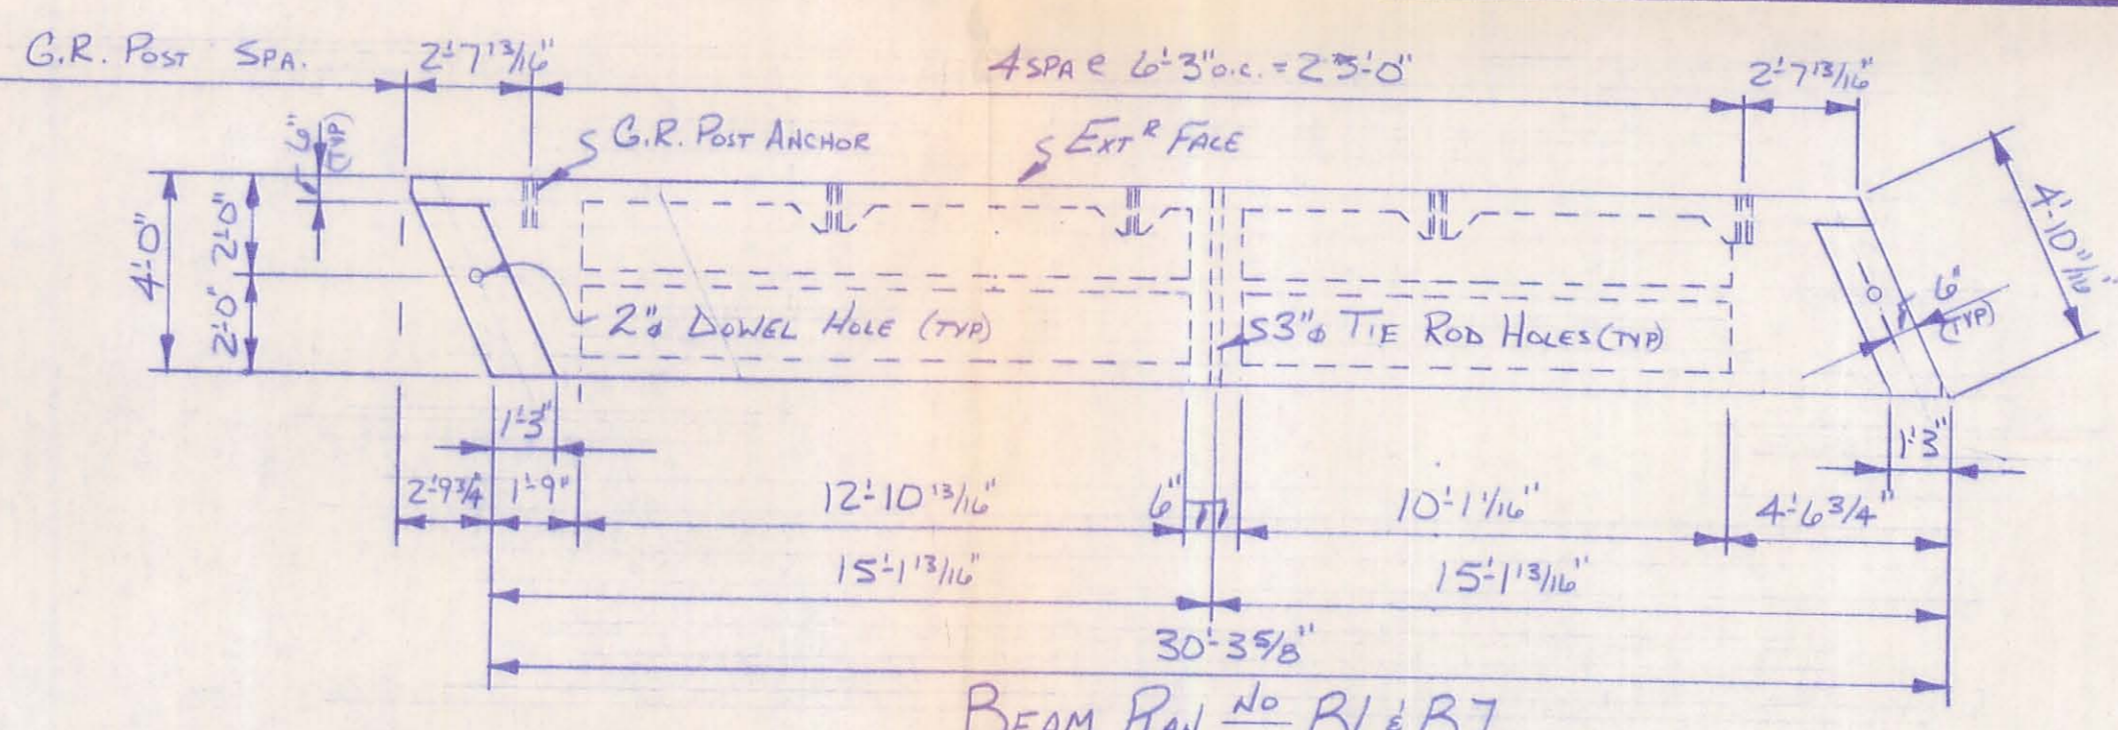 G.R. POST SPA.
2'-7 13/16"
4 SPA @ 6'-3" o.c. = 25'-0"
2'-7 13/16"
6"
(TYP)
G.R. POST ANCHOR
EXT^R FACE
4'-0"
2'-0"
2'-0"
4'-10 11/16"
2"ø DOWEL HOLE (TYP)
3"ø TIE ROD HOLES (TYP)
6"
(TYP)
1'-3"
1'-3"
2'-9 3/4
1'-9"
12'-10 13/16"
6"
10'-1 1/16"
4'-6 3/4"
15'-1 13/16"
15'-1 13/16"
30'-3 5/8"
BEAM PLAN No B1 & B7